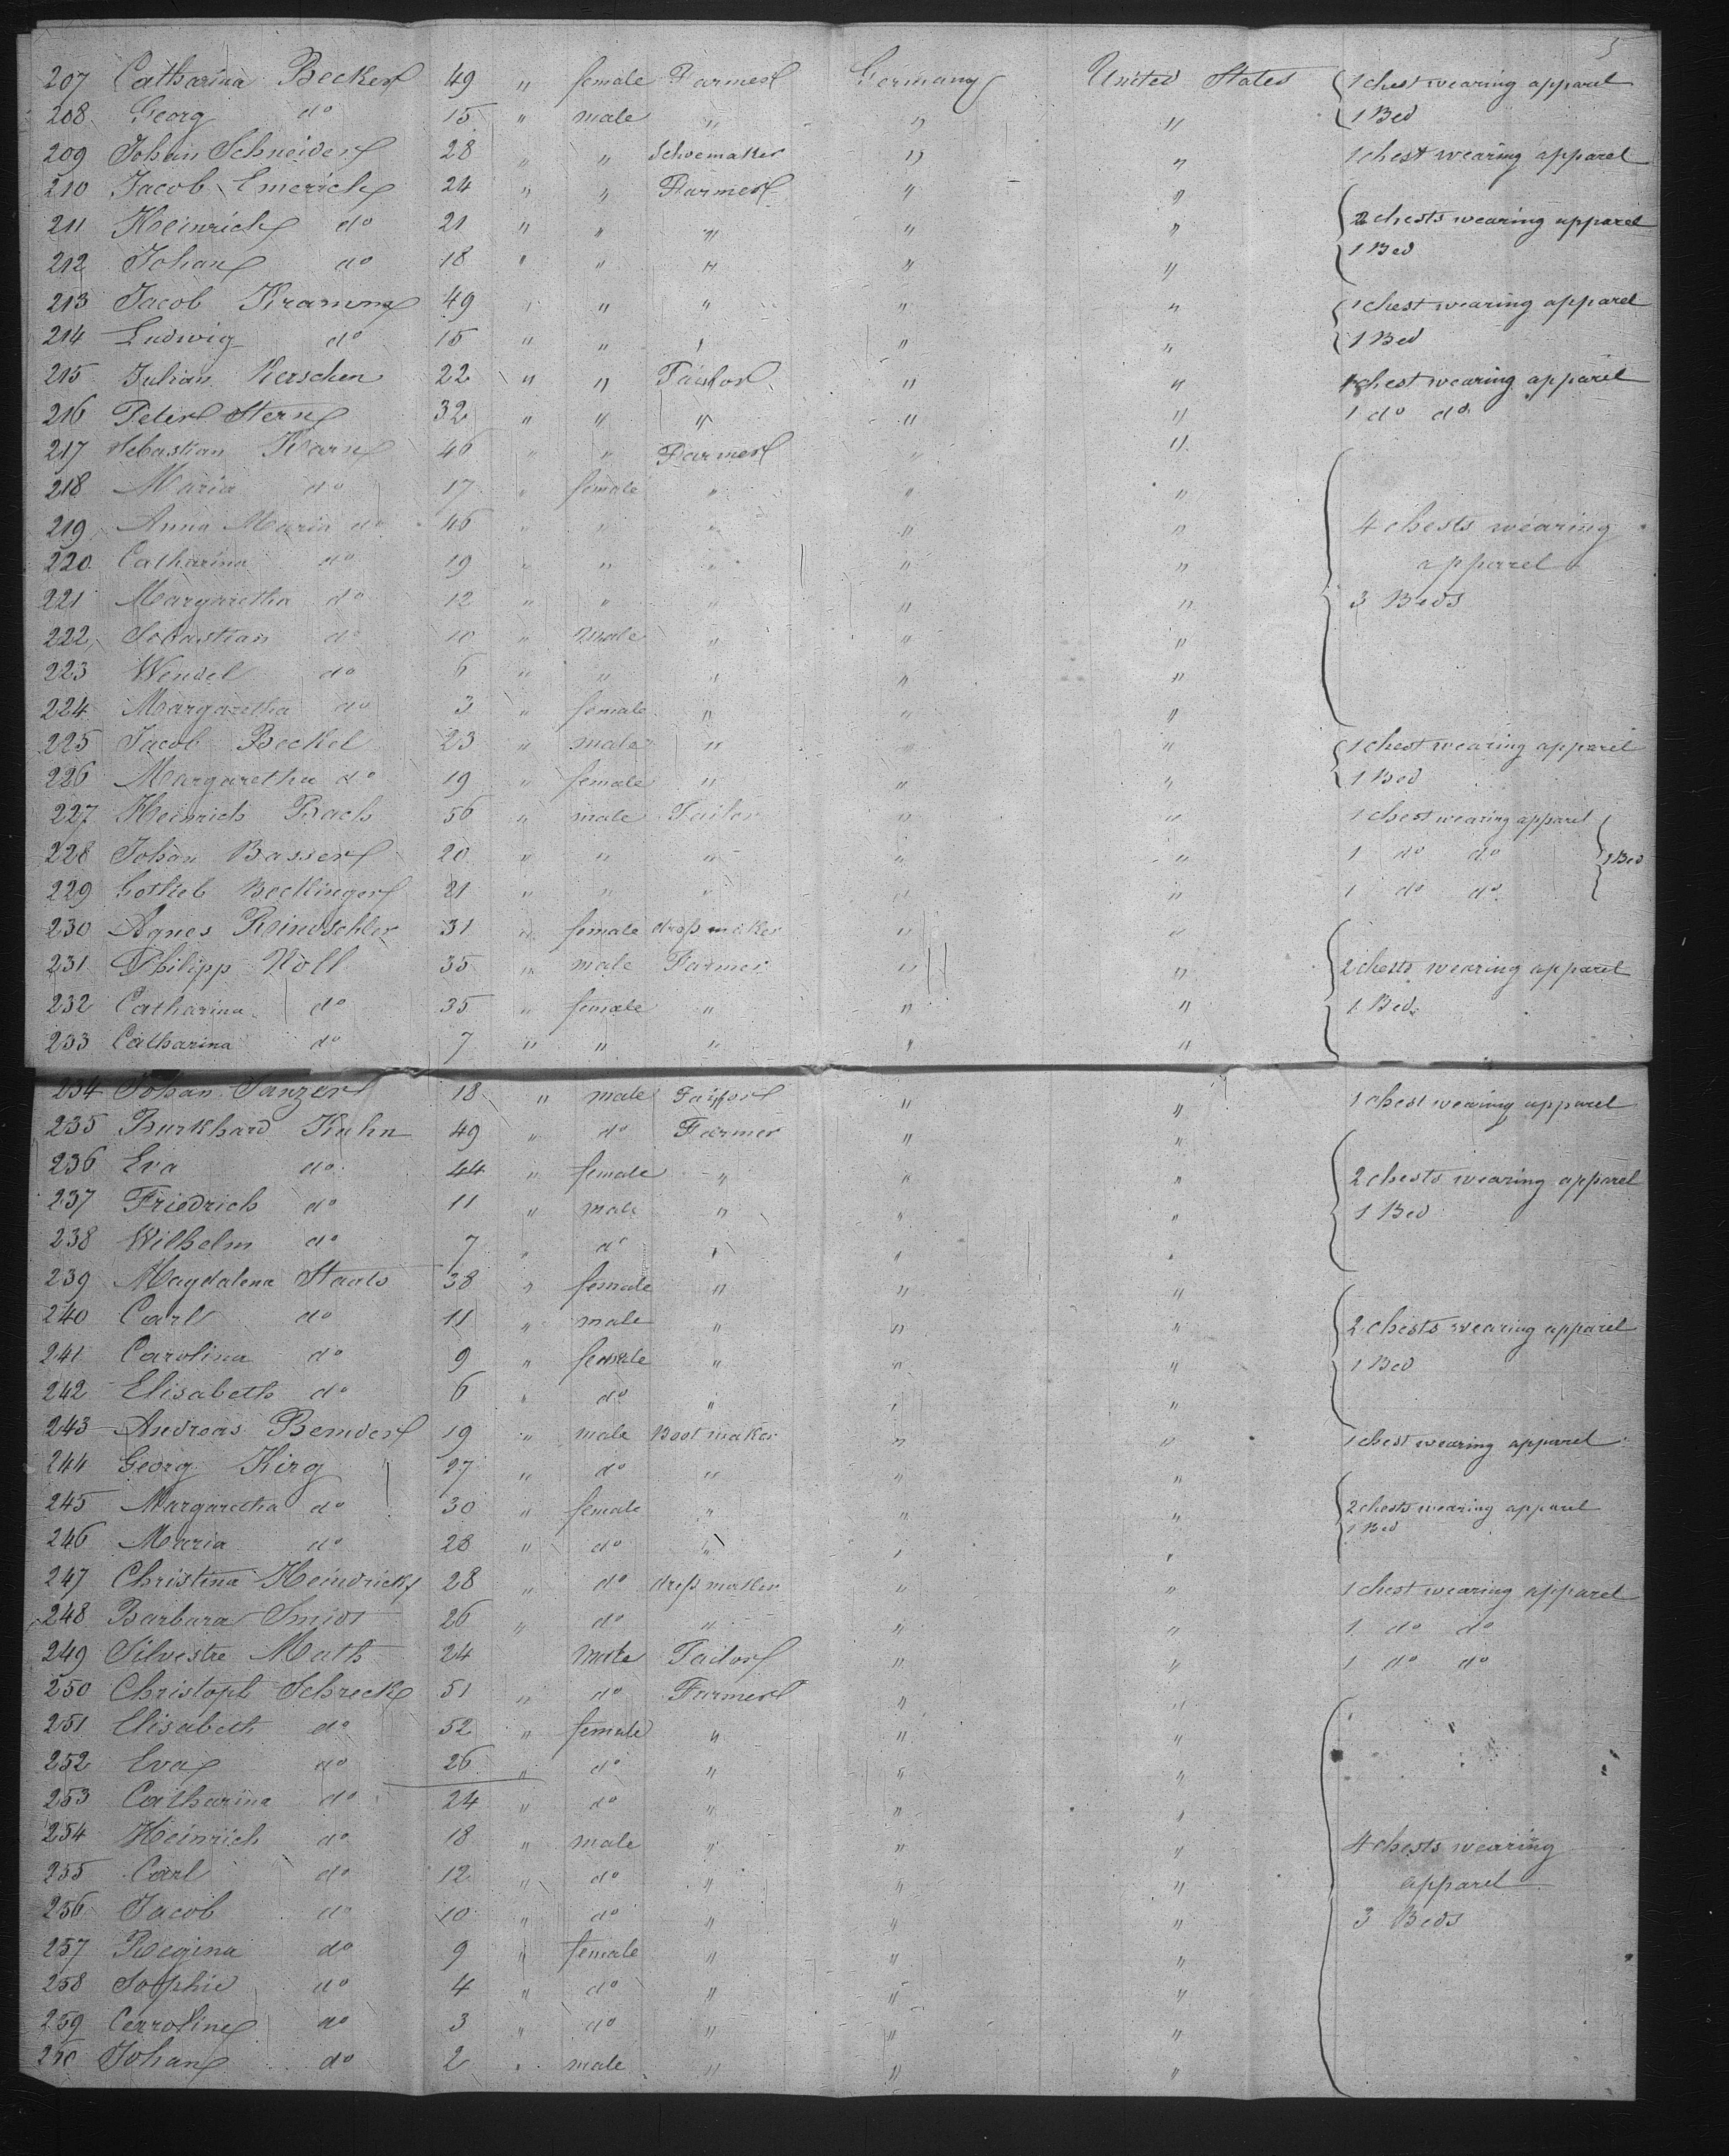 5
207 Catharina Becker 49 " female Farmer Germany United States 1 chest wearing apparel
208 Georg do 15 " male " " " 1 Bed
209 Johan Schneider 28 " " Schoemaker " " 1 chest wearing apparel
210 Jacob Emerich 24 " " Farmer " "
211 Heinrich do 21 " " " " " 2 chests wearing apparel
212 Johan do 18 " " " " " 1 Bed
213 Jacob Kramm 49 " " " " " 1 chest wearing apparel
214 Ludwig do 15 " " " " " 1 Bed
215 Julian Kerschen 22 " " Tailor " " 1 chest wearing apparel
216 Peter Stern 32 " " " " " 1 do do
217 Sebastian 46 " " Farmer " "
218 Maria do 17 " female " " "
219 Anna Maria do 46 " " " " " 4 chests wearing
220 Catharina do 19 " " " " " apparel
221 Margaretha do 12 " " " " " 3 Beds
222 Sebastian do 10 " male " " "
223 Wendel do 6 " " " " "
224 Margaretha do 3 " female " " "
225 Jacob Beckel 23 " male " " " 1 chest wearing apparel
226 Margaretha do 19 " female " " " 1 Bed
227 Heinrich Bach 56 " male Tailor " " 1 chest wearing apparel
228 Johan Basser 20 " " " " " 1 do do 1 Bed
229 Gotlieb Becklinger 21 " " " " " 1 do do
230 Agnes Reindschler 31 " female dress maker " "
231 Philipp Noll 35 " male Farmer " " 2 chests wearing apparel
232 Catharina do 35 " female " " " 1 Bed
233 Catharina do 7 " " " " "
234 Johan Sanzer 18 " male " " 1 chest wearing apparel
235 Burkhard Kuhn 49 " do Farmer " "
236 Eva do 44 " female " " " 2 chests wearing apparel
237 Friedrich do 11 " male " " " 1 Bed
238 Wilhelm do 7 " do " " "
239 Magdalena Staats 38 " female " " "
240 Carl do 11 " male " " " 2 chests wearing apparel
241 Carolina do 9 " female " " " 1 Bed
242 Elisabeth do 6 " do " " "
243 Andreas Bemder 19 " male Boot maker " " 1 chest wearing apparel
244 Georg Kirg 27 " do " " "
245 Margaretha do 30 " female " " " 2 chests wearing apparel
246 Maria do 28 " do " " " 1 Bed
247 Christina Heindrich 28 " do dress maker " " 1 chest wearing apparel
248 Barbara Smidt 26 " do " " " 1 do do
249 Silvestre Math 24 male Tailor " " 1 do do
250 Christoph Schreck 51 " do Farmer " "
251 Elisabeth do 52 " female " " "
252 Eva do 26 " do " " "
253 Catharina do 24 " do " " "
254 Heinrich do 18 " male " " " 4 chests wearing
255 Carl do 12 " do " " " apparel
256 Jacob do 10 " do " " " 3 Beds
257 Regina do 9 " female " " "
258 Sophie do 4 " do " " "
259 Carroline do 3 " do " " "
260 Johan do 2 " male " " "